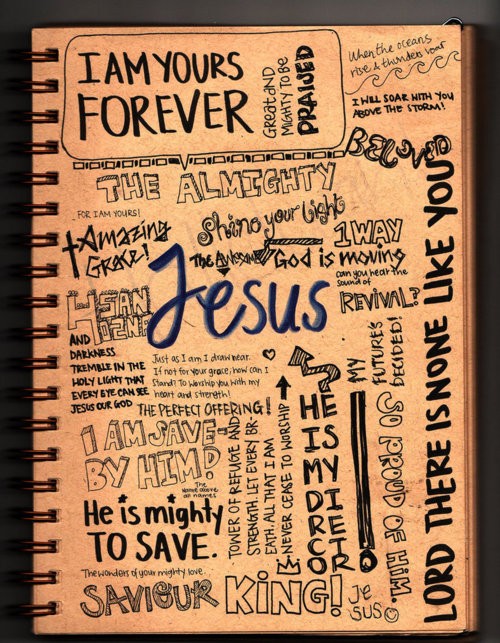 I AM YOURS
FOREVER
Great and
MIGHTY TO BE
PRAISED
When the oceans
rise & thunders roar
I WILL SOAR WITH YOU
ABOVE THE STORM!
BELOVED
THE ALMIGHTY
FOR I AM YOURS!
Amazing
Grace!
Shine your light
The Awesome
God is moving
1 WAY
can you hear the
sound of
REVIVAL?
Jesus
AND
DARKNESS
TREMBLE IN THE
HOLY LIGHT THAT
EVERY EYE CAN SEE
JESUS OUR GOD
Just as I am I draw near.
If not for your grace, how can I
stand? To worship you with my
heart and strength!
THE PERFECT OFFERING!
I AM SAVE-
BY HIM!
D
The
name above
all names
He is mighty
TO SAVE.
TOWER OF REFUGE AND
STRENGTH. LET EVERY BR-
EATH, ALL THAT I AM
NEVER CEASE TO WORSHIP
HE
IS
MY
DI
RE
CT
OR
MY
FUTURE'S
DECIDED!
SO PROUD OF HIM.
LORD THERE IS NONE LIKE YOU
The wonders of your mighty love.
SAVIOUR
KING!
JE
SUS